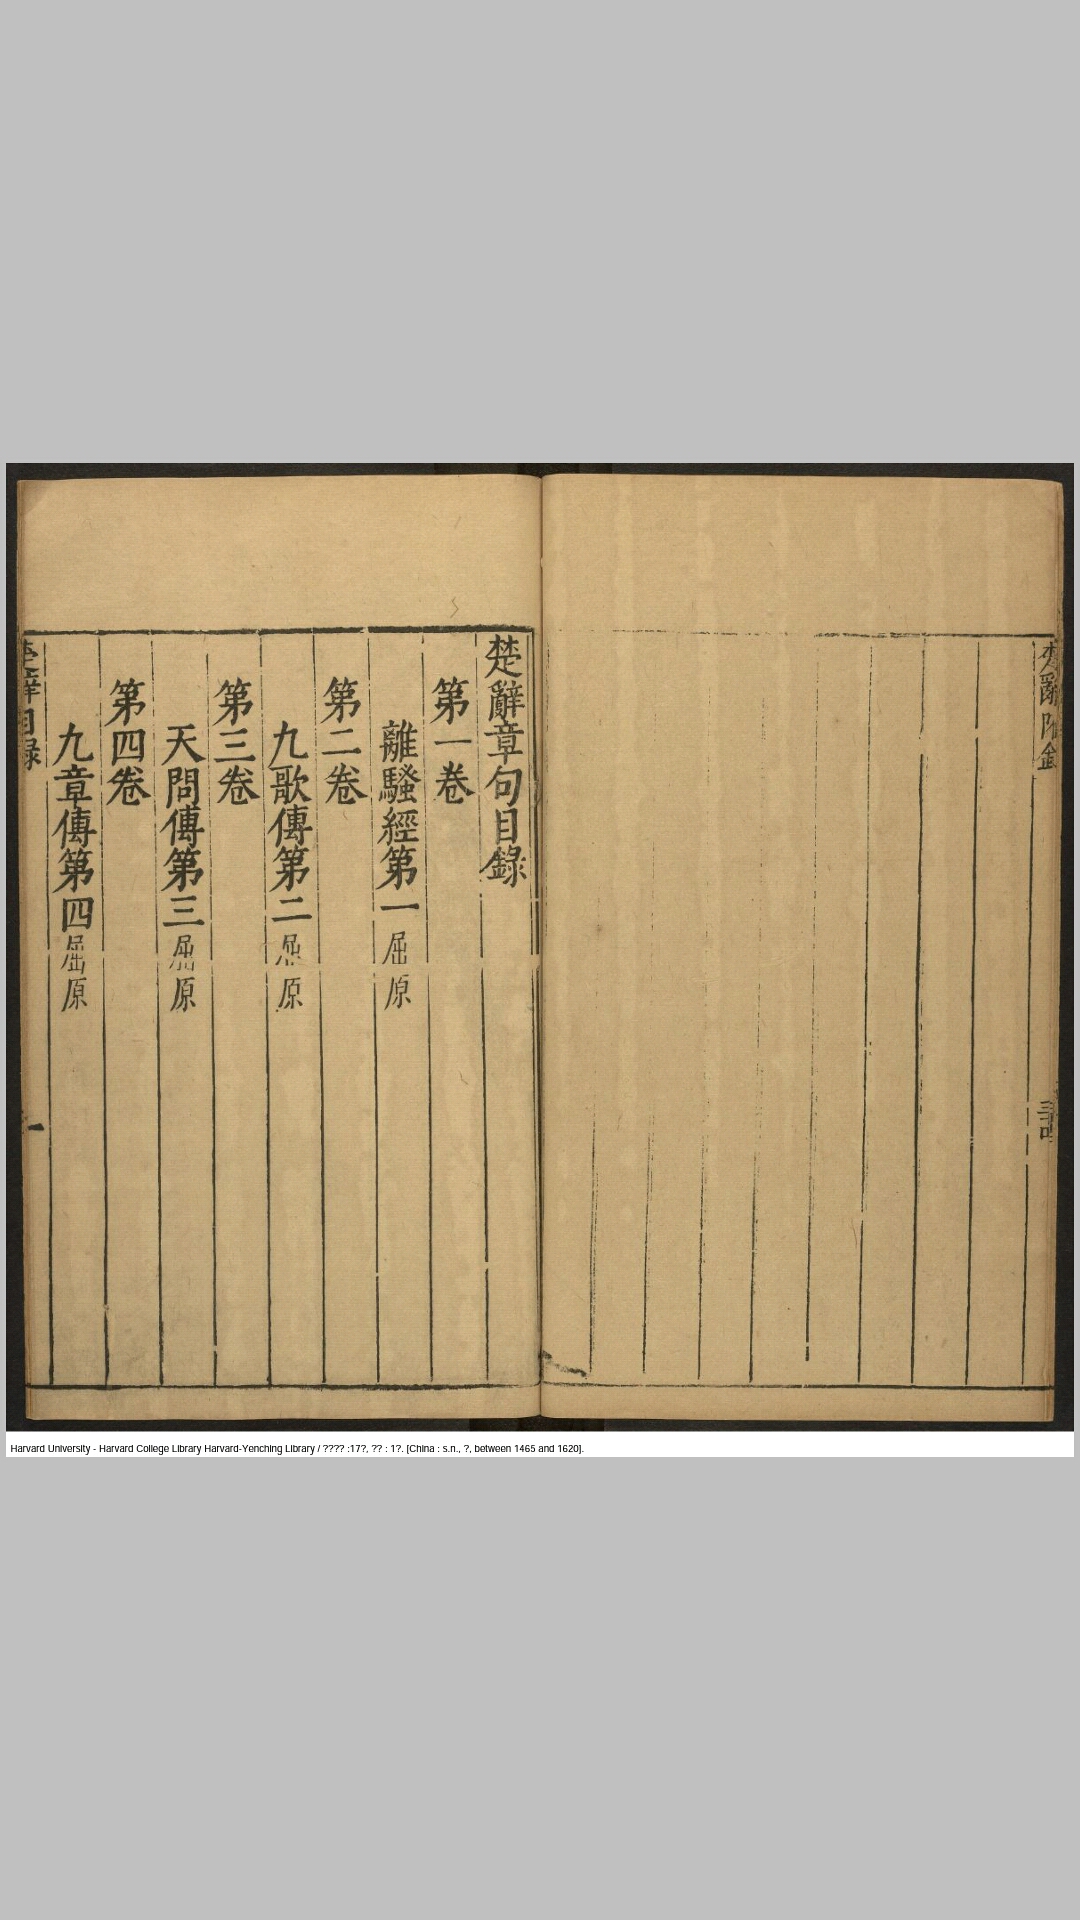 楚辭附錄
楚辭章句目錄
第一卷
離騷經第一 屈原
第二卷
九歌傳第二 屈原
第三卷
天問傳第三 屈原
第四卷
九章傳第四 屈原
楚辭目錄
一
Harvard University - Harvard College Library Harvard-Yenching Library / ???? :17?, ?? : 1?. [China : s.n., ?, between 1465 and 1620].